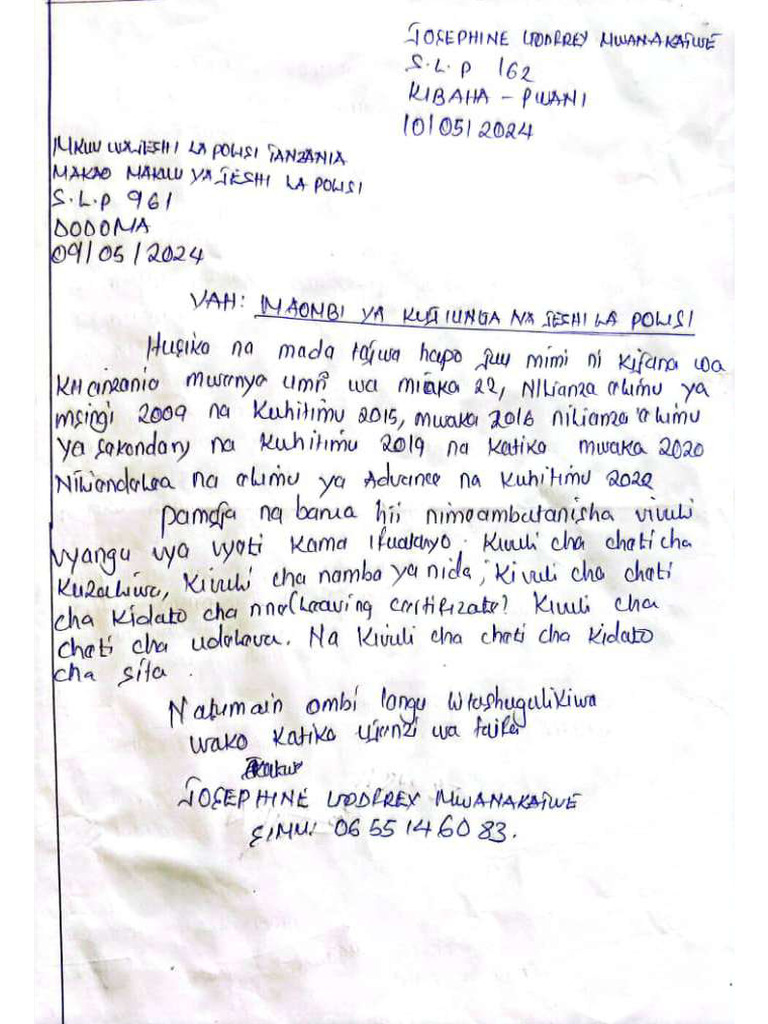 JOSEPHINE GODFREY MWANAKATWE
S.L.P 162
KIBAHA - PWANI
10/05/2024
MKUU WA JESHI LA POLISI TANZANIA
MAKAO MAKUU YA JESHI LA POLISI
S.L.P 961
DODOMA
09/05/2024
YAH: MAOMBI YA KUJIUNGA NA JESHI LA POLISI
Husika na mada tajwa hapo juu mimi ni kijana wa
Kitanzania mwenye umri wa miaka 22, Nilianza elimu ya
msingi 2009 na Kuhitimu 2015, mwaka 2016 nilianza elimu
ya sekondary na Kuhitimu 2019 na Katika mwaka 2020
Niliendelea na elimu ya Advance na Kuhitimu 2022
Pamoja na barua hii nimeambatanisha vivuli
vyangu vya vyeti kama ifuatavyo. Kivuli cha cheti cha
Kuzaliwa, Kivuli cha namba ya nida, Kivuli cha cheti
cha Kidato cha nne (Leaving certifizate) Kivuli cha
cheti cha udereva. Na Kivuli cha cheti cha Kidato
cha sita.
Natumain ombi langu litashugulikiwa
wako Katika ujenzi wa taifa
JOSEPHINE GODFREY MWANAKATWE
SIMU: 0655146083.